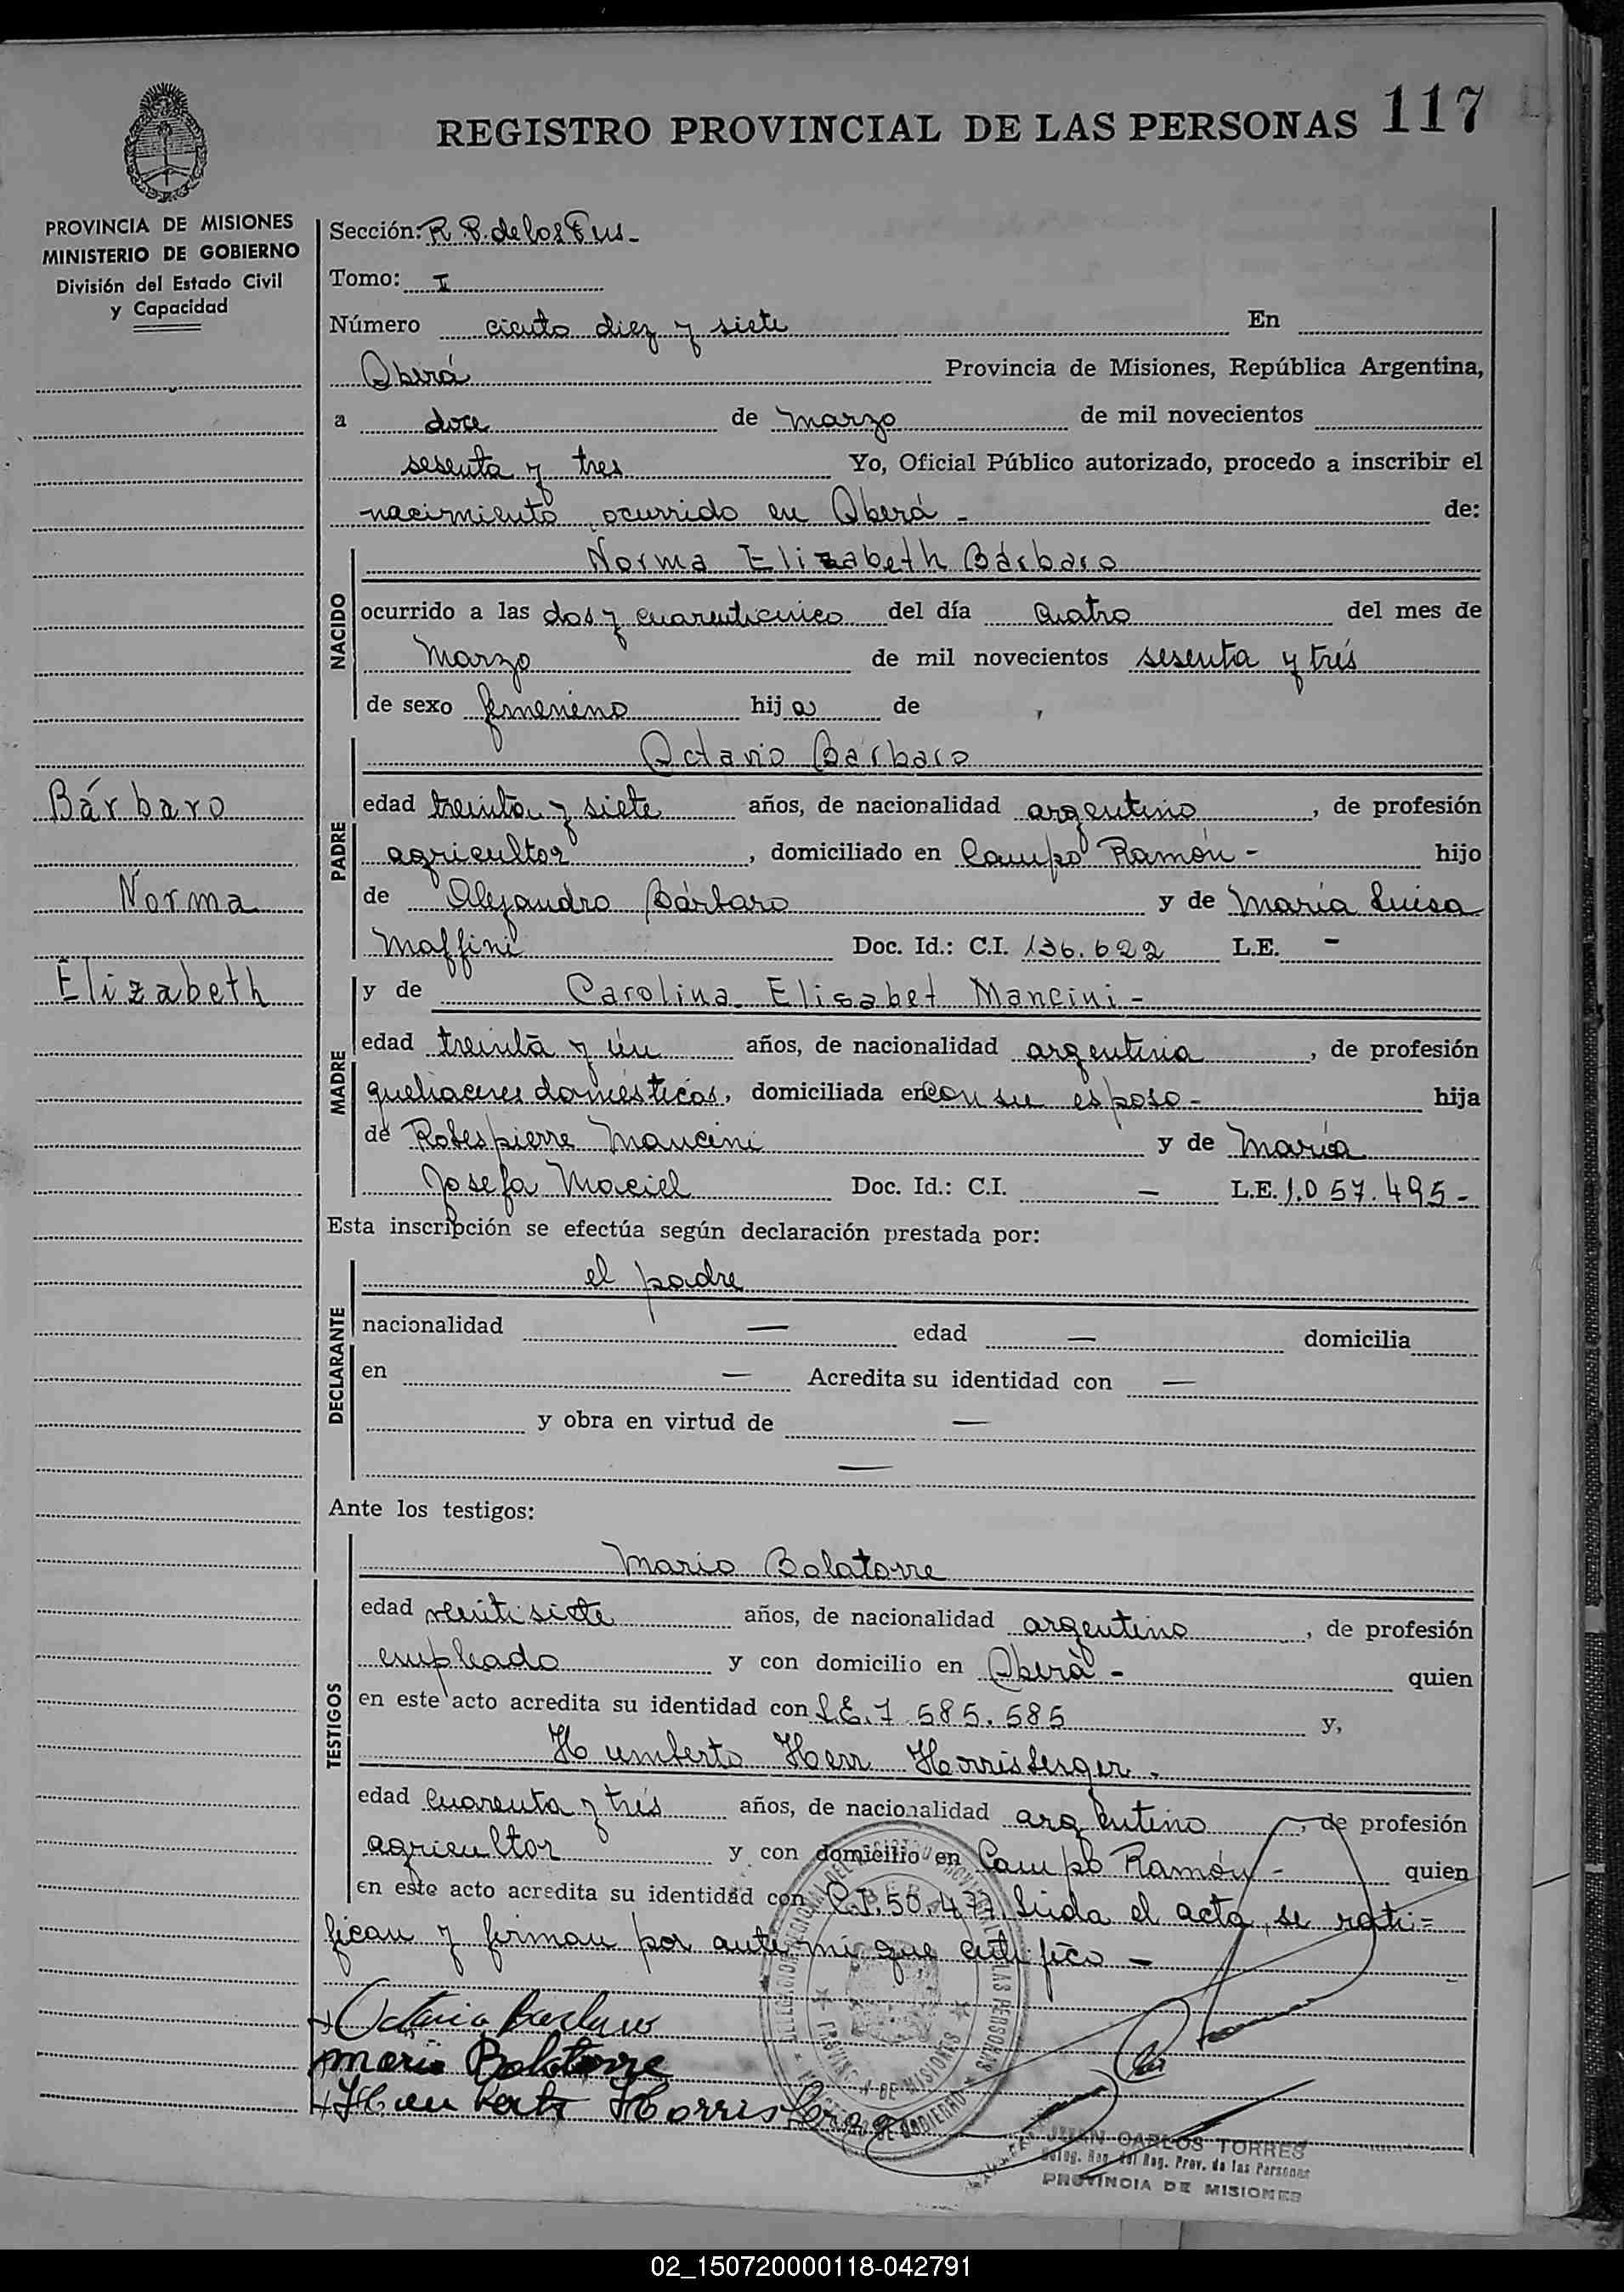 REGISTRO PROVINCIAL DE LAS PERSONAS 117
PROVINCIA DE MISIONES
MINISTERIO DE GOBIERNO
División del Estado Civil
y Capacidad
Bárbaro
Norma
Elizabeth
Sección: R. P. de los
Tomo: I
Número ciento diez y siete En
Oberá Provincia de Misiones, República Argentina,
a doce de marzo de mil novecientos
sesenta y tres Yo, Oficial Público autorizado, procedo a inscribir el
nacimiento ocurrido en Oberá - de:
Norma Elizabeth Bárbaro
NACIDO
ocurrido a las dos y cuarenticinco del día cuatro del mes de
marzo de mil novecientos sesenta y trés
de sexo femenino hija de
Octavio Bárbaro
PADRE
edad treinta y siete años, de nacionalidad argentino, de profesión
agricultor, domiciliado en Campo Ramón - hijo
de Alejandro Bárbaro y de María Luisa
Maffini Doc. Id.: C.I. 136.622 L.E. -
y de Carolina Elisabet Mancini -
MADRE
edad treinta y ún años, de nacionalidad argentina, de profesión
quehaceres domésticos, domiciliada en con su esposo - hija
de Robespierre Mancini y de María
Josefa Maciel Doc. Id.: C.I. — L.E. 1.057.495-
Esta inscripción se efectúa según declaración prestada por:
el padre
DECLARANTE
nacionalidad — edad — domicilia
en — Acredita su identidad con —
y obra en virtud de —
—
Ante los testigos:
Mario Bolatorre
TESTIGOS
edad veintisiete años, de nacionalidad argentino, de profesión
empleado y con domicilio en Oberá - quien
en este acto acredita su identidad con L.E. 7.585.585 y,
Humberto Herr Horrisberger -
edad cuarenta y trés años, de nacionalidad argentino, de profesión
agricultor y con domicilio en Campo Ramón - quien
en este acto acredita su identidad con C.I. 50.477. Leída el acta, se rati=
fican y firman por ante mi que certifico -
Octavio Barbaro
Mario Bolatorre
Humberto Horrisberger
PROVINCIA DE MISIONES
JUAN CARLOS TORRES
Reg. Prov. de las Personas
PROVINCIA DE MISIONES
02_150720000118-042791